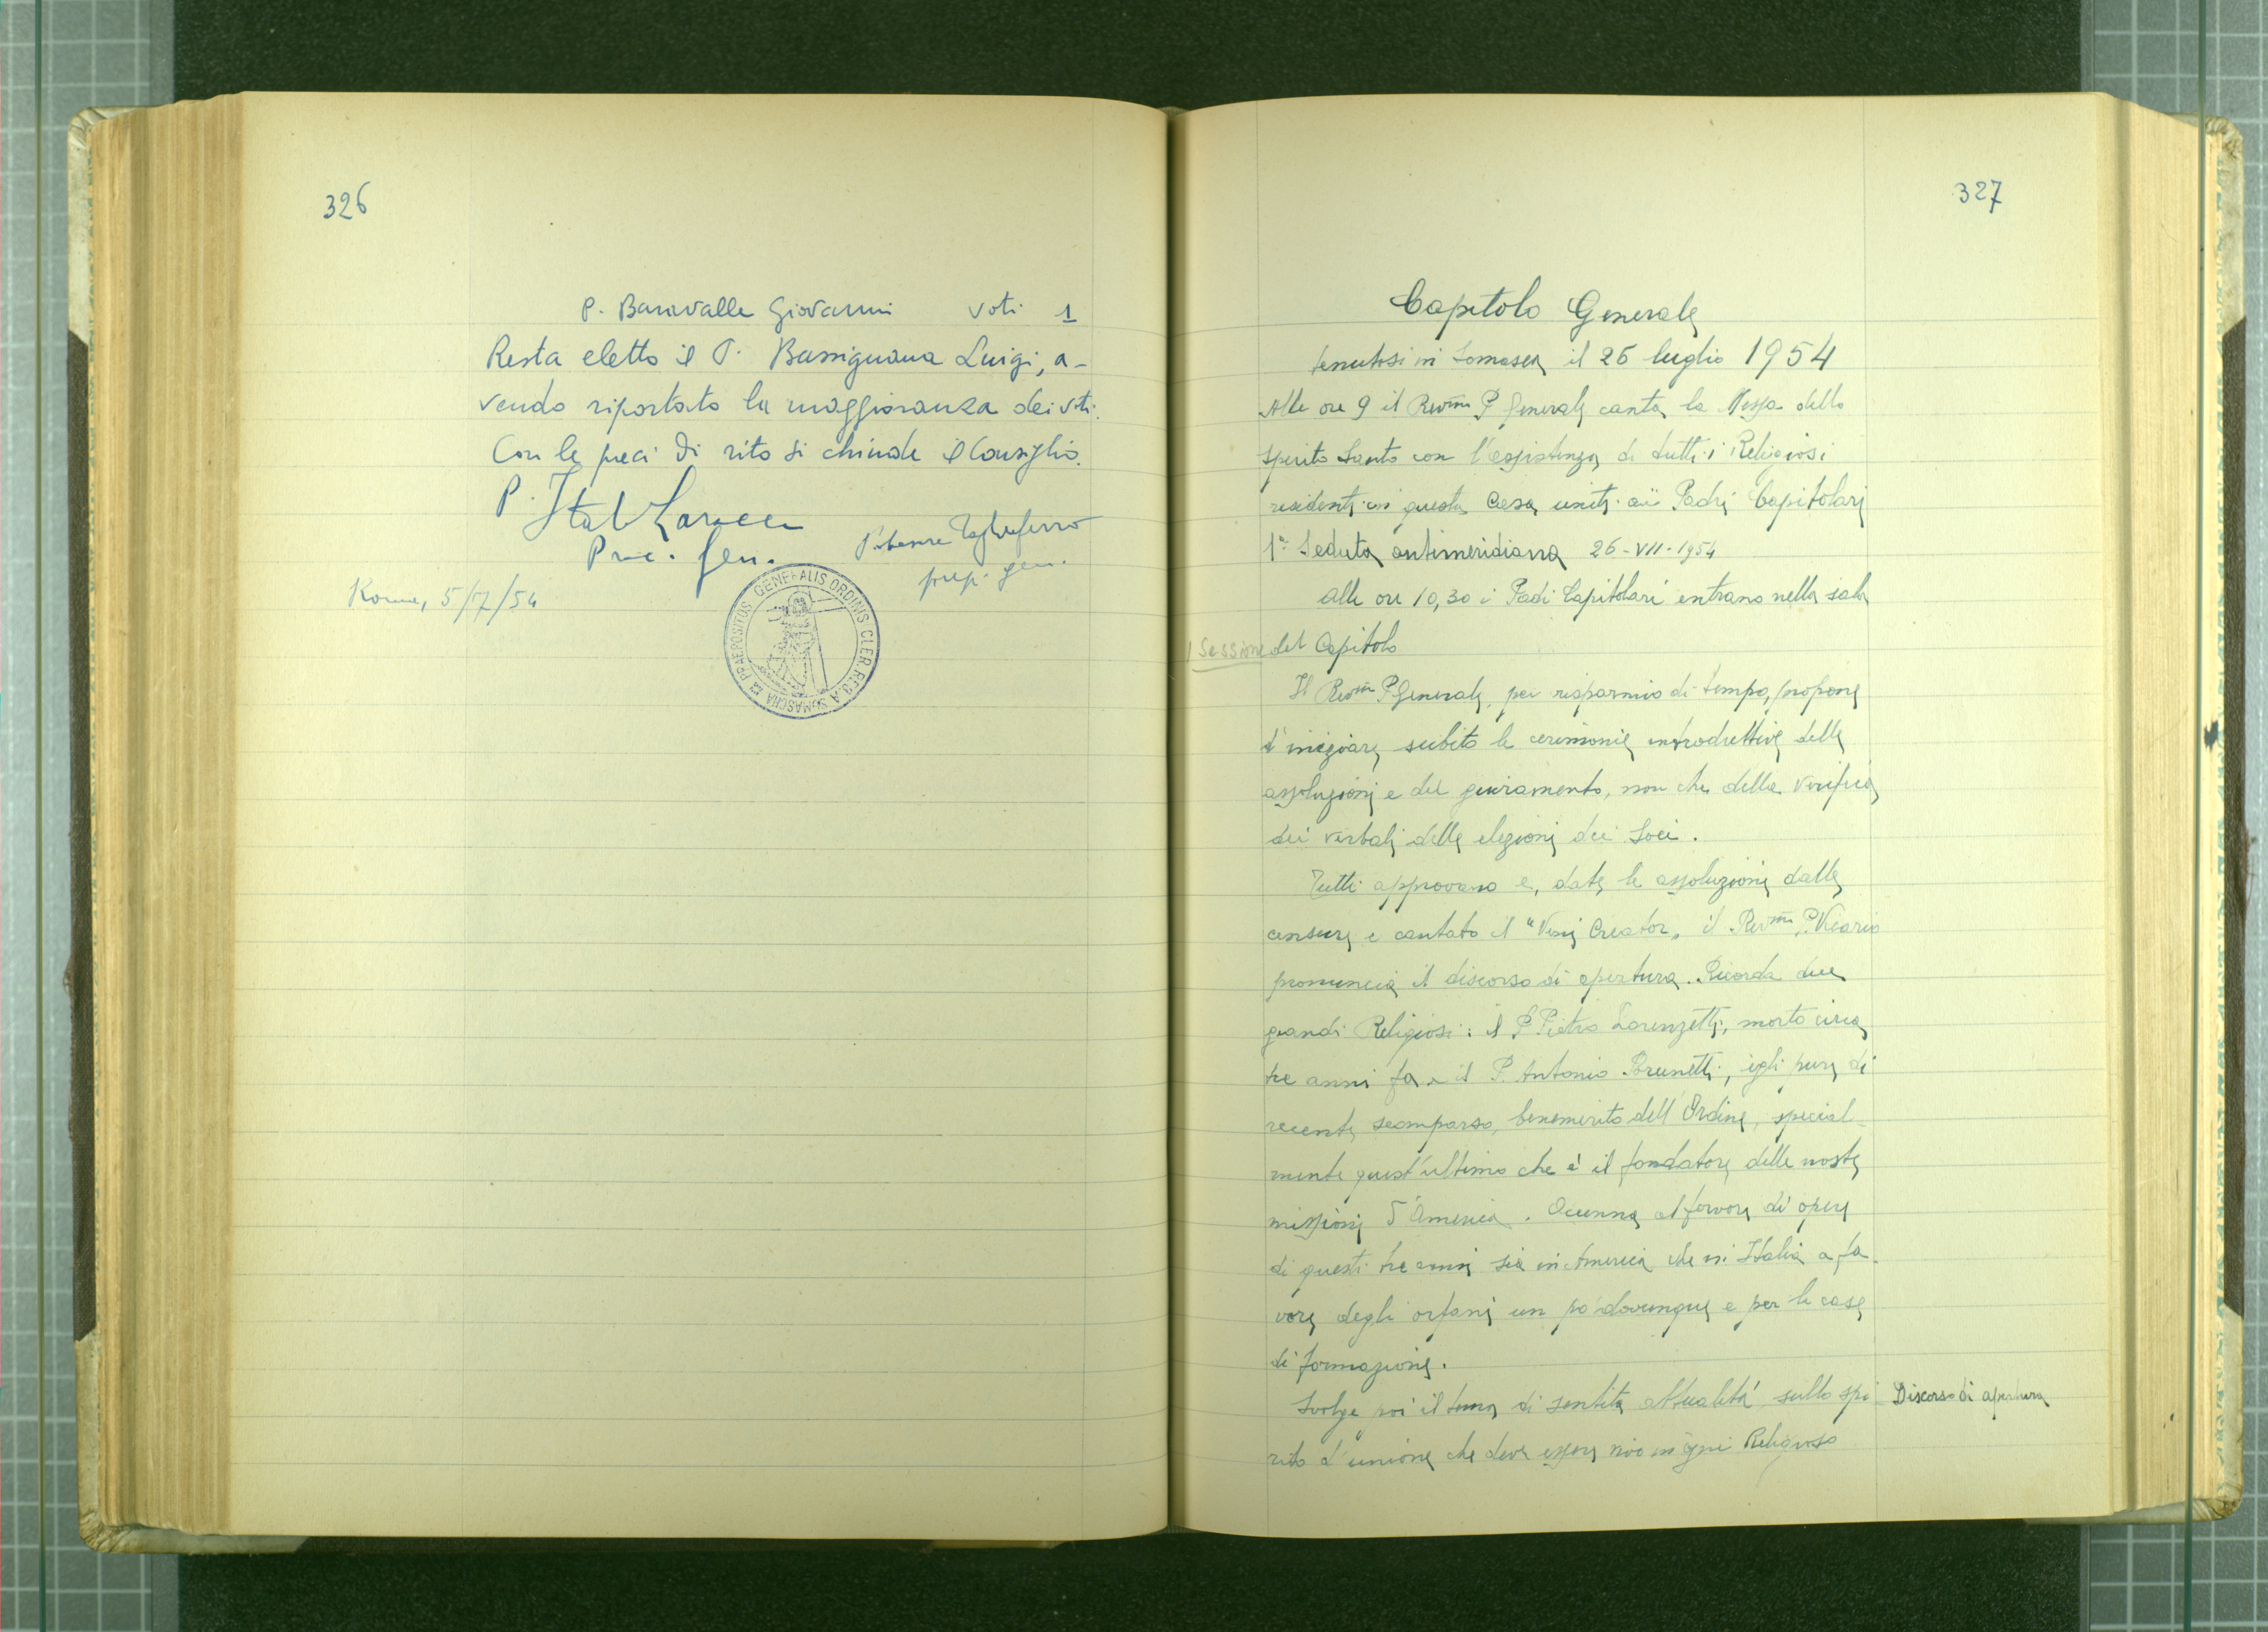 326
P. Baravalle Giovanni voti 1
Resta eletto il P. Bassignana Luigi, a-
vendo riportato la maggioranza dei voti.
Con le preci di rito si chiude il Consiglio.
P. Italo Laracca
Proc. Gen.
P. Cesare Tagliaferro
prep. gen.
Roma, 5/7/54
PRAEPOSITUS GENERALIS ORDINIS CLER. REG. A SOMASCHA
327
Capitolo Generale
tenutosi in Somasca il 26 luglio 1954
Alle ore 9 il Rev.mo P. Generale canta la Messa dello
Spirito Santo con l'assistenza di tutti i Religiosi
residenti in questa Casa uniti ai Padri Capitolari
1ª Seduta antimeridiana 26-VII-1954
Alle ore 10,30 i Padri Capitolari entrano nella sala
1 Sessione
del Capitolo
Il Rev.mo P. Generale, per risparmio di tempo, propone
d'iniziare subito le cerimonie introduttive delle
assoluzioni e del giuramento, non che della verifica
dei verbali delle elezioni dei Soci.
Tutti approvano e, date le assoluzioni dalle
censure e cantato il "Veni Creator" il Rev.mo P. Vicario
pronuncia il discorso di apertura. Ricorda due
grandi Religiosi: il P. Pietro Lorenzetti, morto circa
tre anni fa e il P. Antonio Brunetti, egli pure di
recente scomparso, benemerito dell'Ordine, special-
mente quest'ultimo che è il fondatore delle nostre
missioni d'America. Accenna al fervore di opere
di questi tre anni sia in America che in Italia a fa-
vore degli orfani un po' dovunque e per le case
di formazione.
Svolge poi il tema di sentita attualità sullo spi-
Discorso di apertura
rito d'unione che deve essere vivo in ogni Religioso